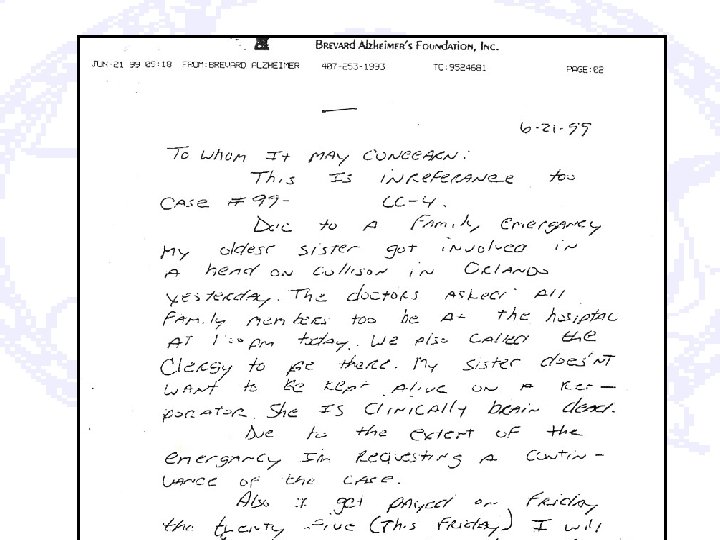 BREVARD ALZHEIMER'S FOUNDATION, INC.
JUN-21 99 09:18 FROM:BREVARD ALZHEIMER 407-253-1993 TO:9524681 PAGE:02
6-21-99
To Whom It MAY CONCEARN:
This Is INREFERANCE too
CASE #99- CC-4.
Due to A Family emergancy
My oldest sister got involved in
A head on collison in ORLANDO
yesterday. The doctors Asked All
Family members too be At the hosiptal
AT 1:00 pm today. We also called the
Clergy to be there. My sister does'NT
WANT to Be kept Alive on A Res-
porator. She Is Clinically brain dead.
Due to the extent of the
emergancy Im Requesting A Contin-
uance of the CASE.
Also I get payed on Friday
the twenty five (This Friday) I will